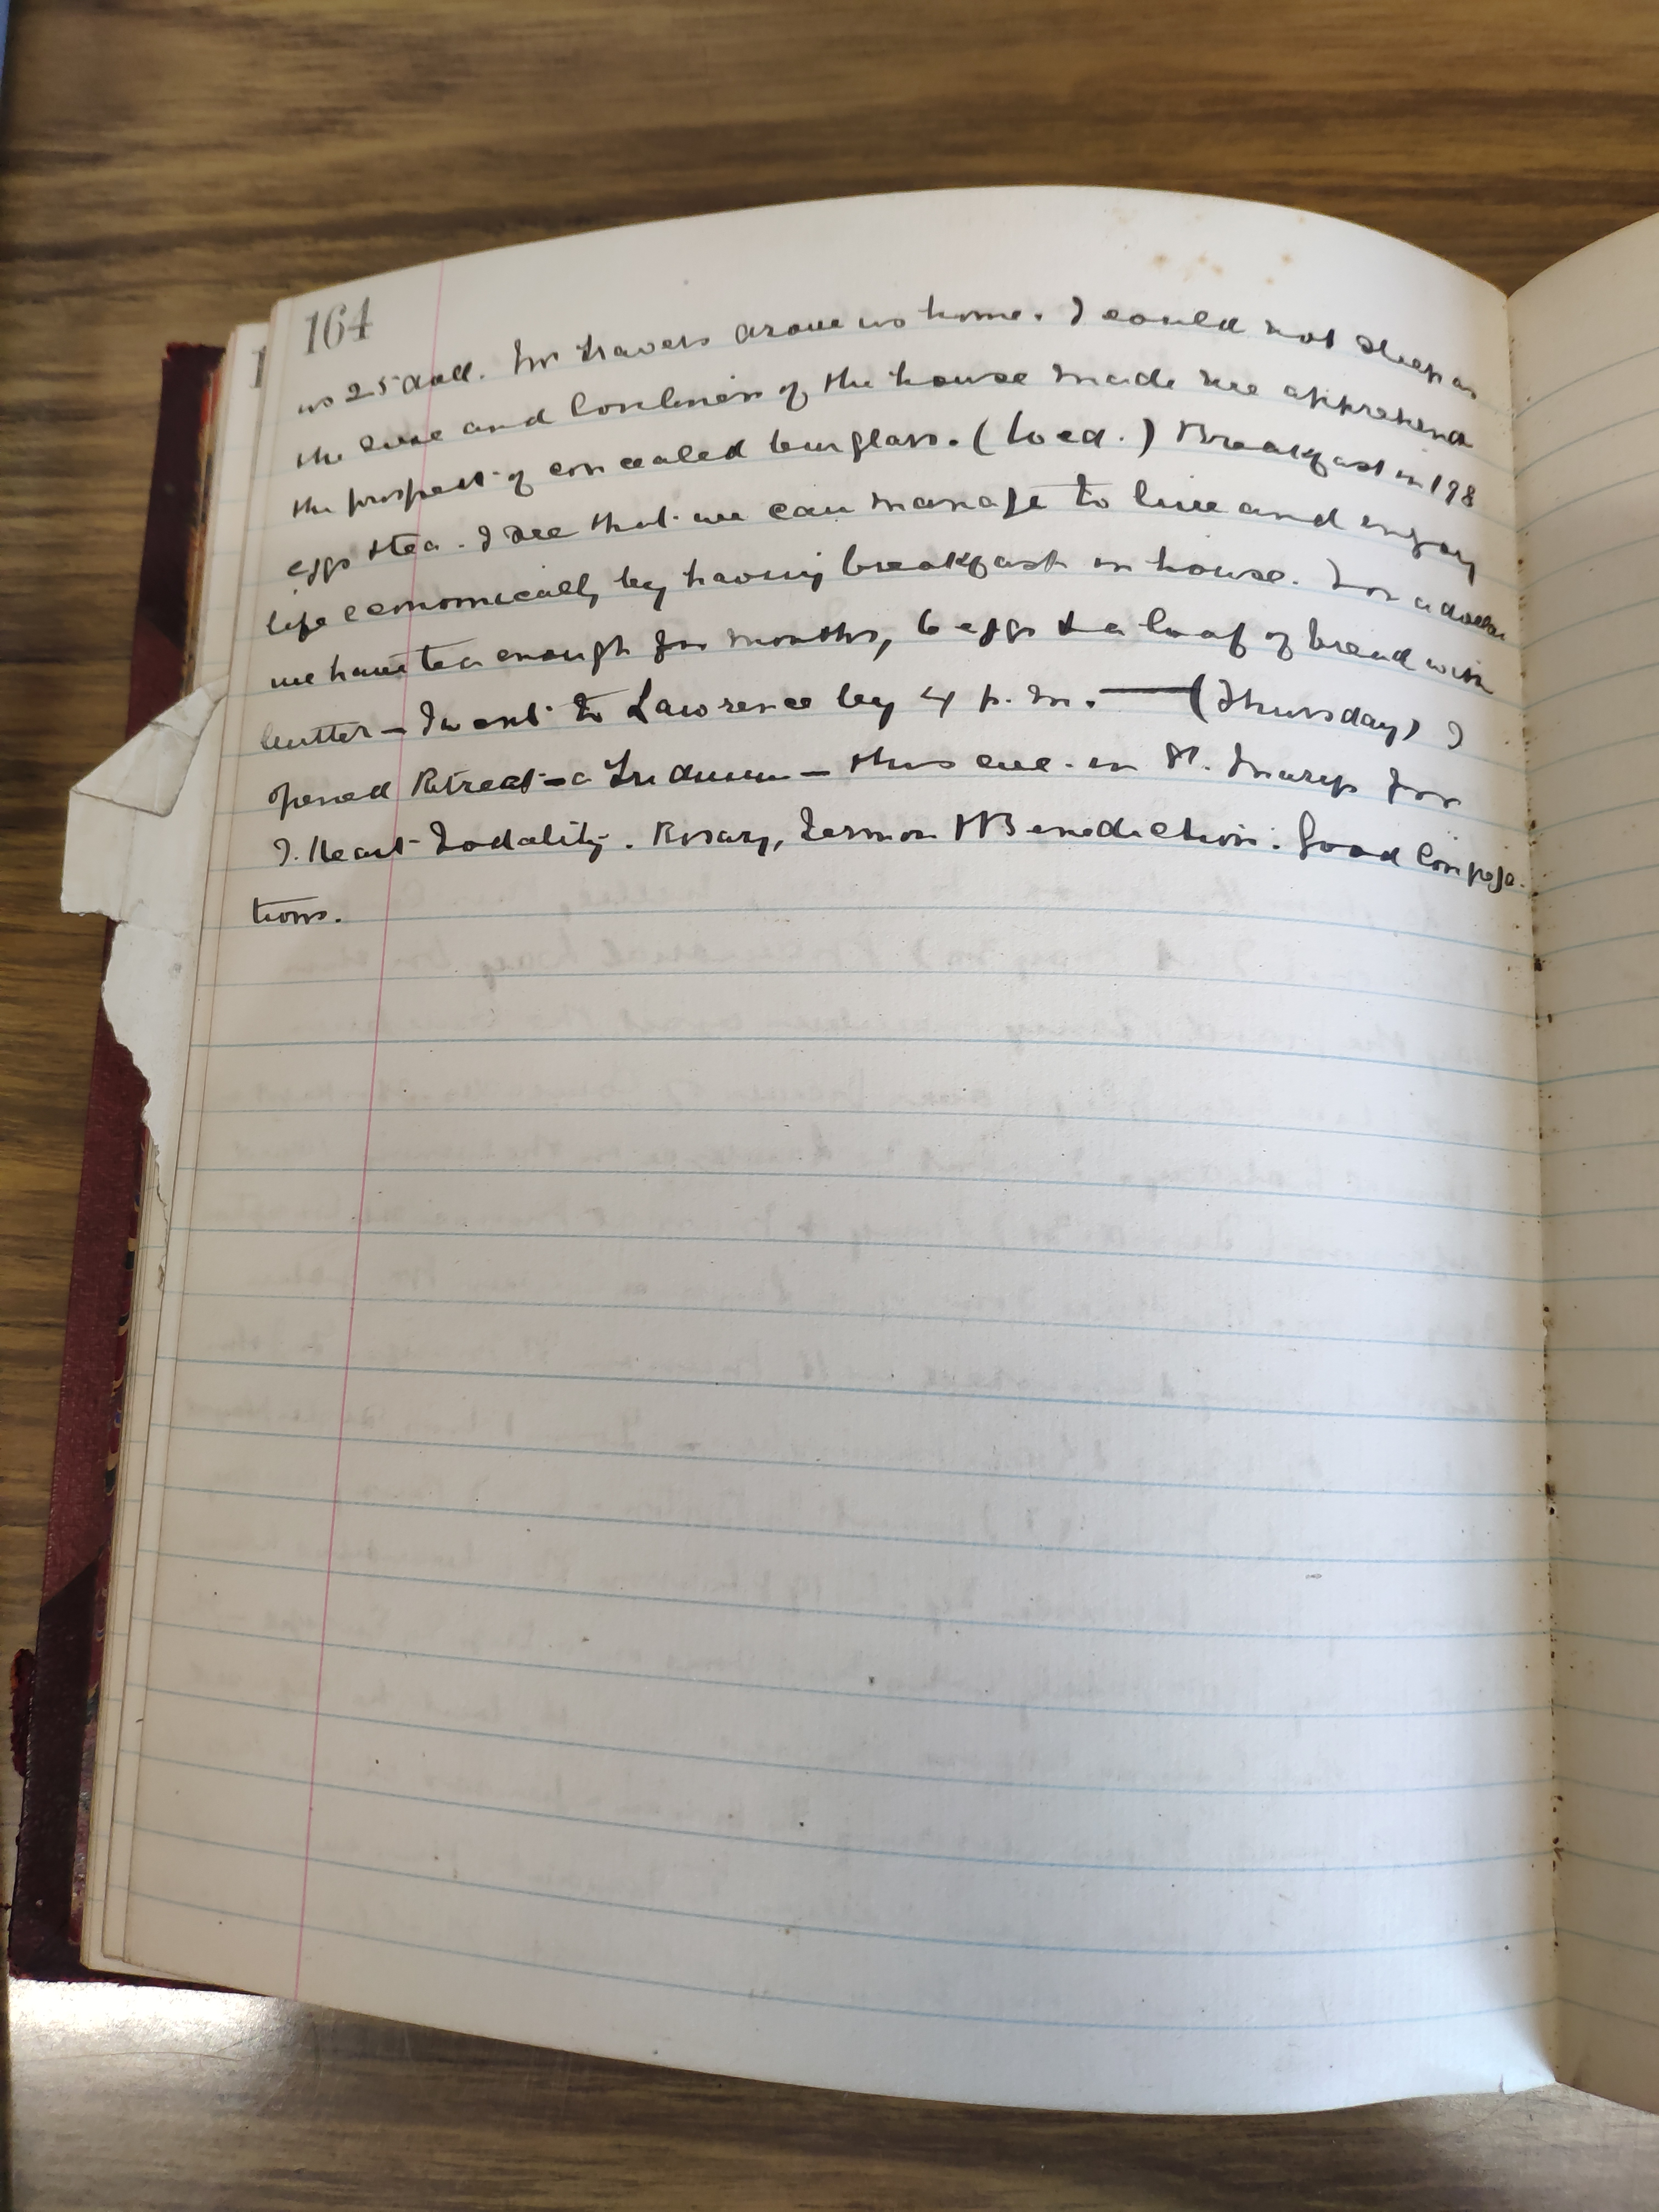 164
us 25 doll. Mr Travers drove us home. I could not sleep as
the size and loneliness of the house made me apprehend
the prospect of concealed burglars. (Wed.) Breakfast in 198
eggs & tea. I see that we can manage to live and enjoy
life economically by having breakfast in house. For a dollar
we have tea enough for months, 6 eggs & a loaf of bread with
butter — I went to Lawrence by 4 p.m. — (Thursday) I
opened Retreat — a Triduum — this eve. in St. Marys for
S. Heart Sodality. Rosary, Sermon & Benediction. Good Congrega-
tions.